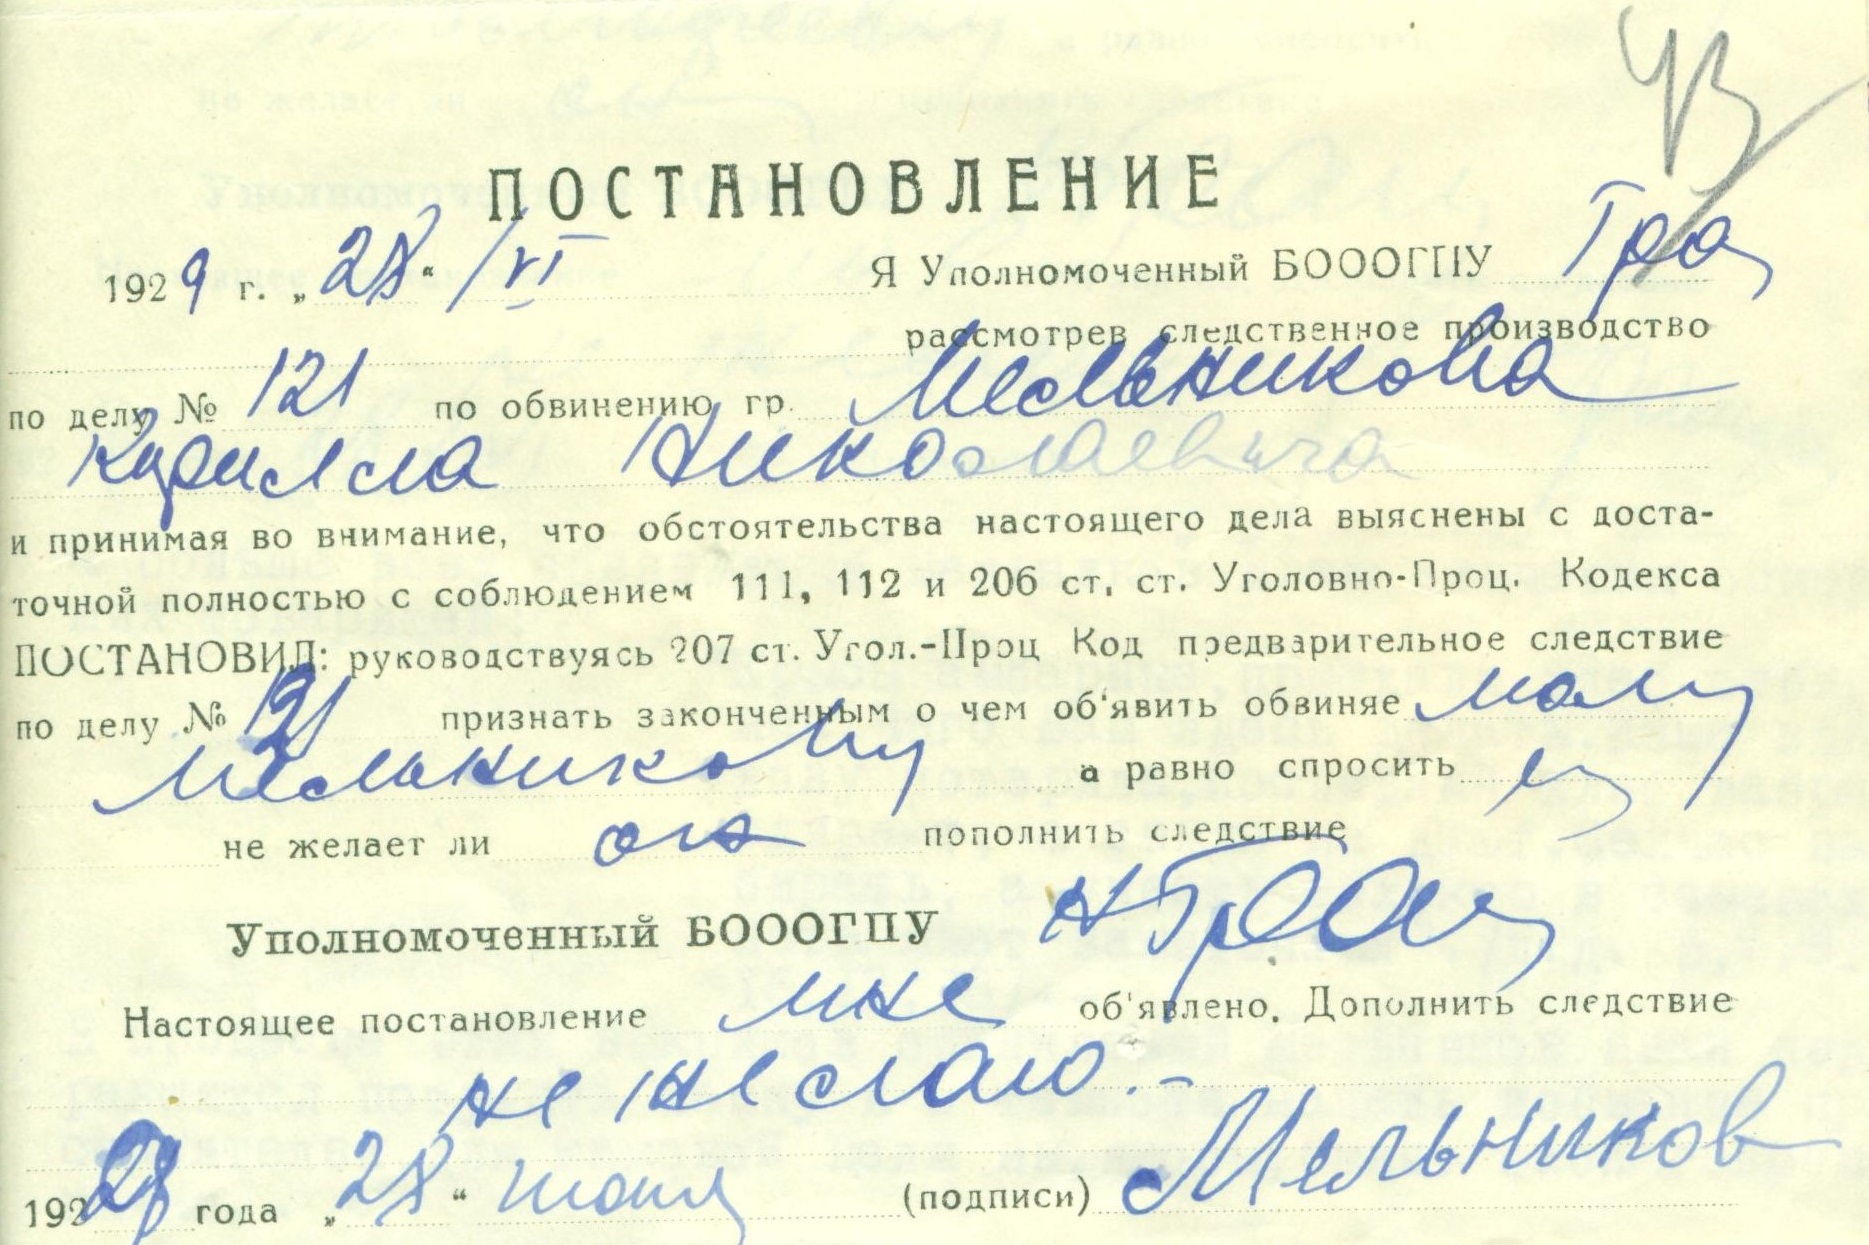 43
ПОСТАНОВЛЕНИЕ
1929 г. „28“/VI Я Уполномоченный БОООГПУ
рассмотрев следственное производство
по делу № 121 по обвинению гр. Мельникова
Кирилла Николаевича
и принимая во внимание, что обстоятельства настоящего дела выяснены с доста-
точной полностью с соблюдением 111, 112 и 206 ст. ст. Уголовно-Проц. Кодекса
ПОСТАНОВИЛ: руководствуясь 207 ст. Угол.-Проц Код предварительное следствие
по делу № 121 признать законченным о чем об'явить обвиняемому
Мельникову а равно спросить
не желает ли он пополнить следствие
Уполномоченный БОООГПУ
Настоящее постановление мне об'явлено. Дополнить следствие
не желаю.-
1929 года „28“ июня (подписи) Мельников